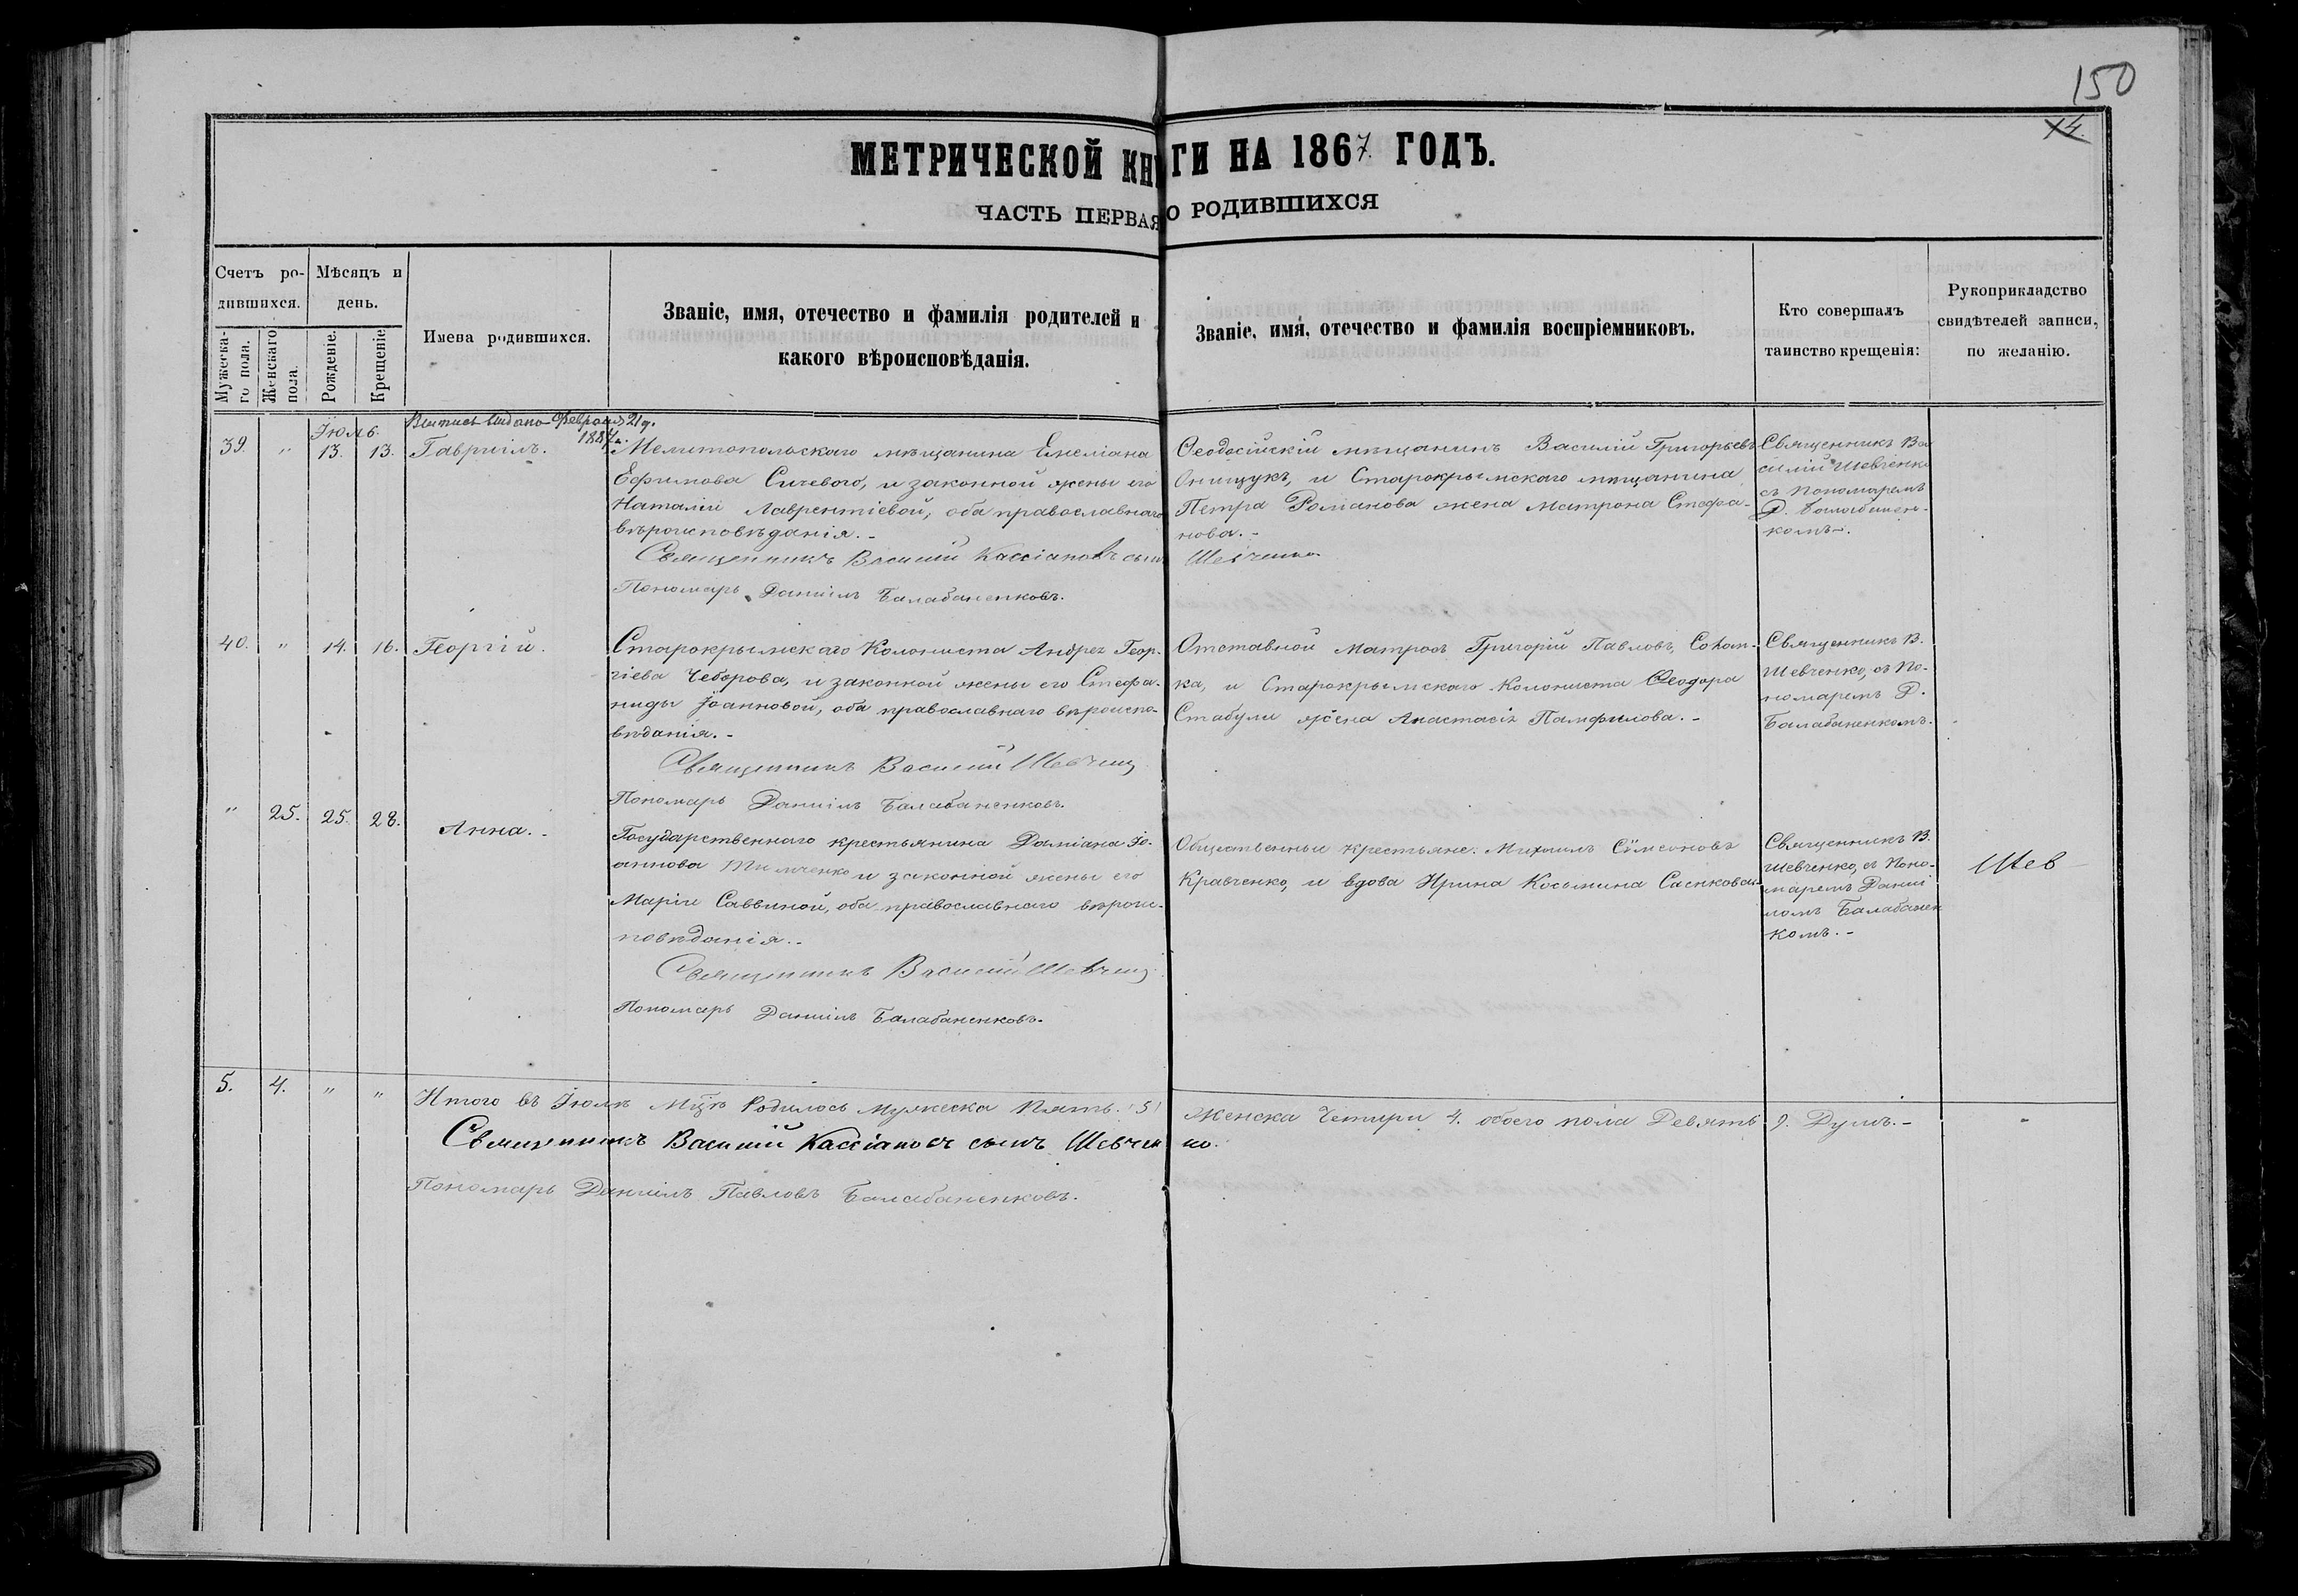 150
14.
МЕТРИЧЕСКОЙ КНИГИ НА 1867. ГОДЪ.
ЧАСТЬ ПЕРВАЯ О РОДИВШИХСЯ
Счетъ ро-
дившихся.
Мужеска-
го пола.
Женскаго
пола.
Мѣсяцъ и
день.
Рожденіе.
Крещеніе
Имена родившихся.
Званіе, имя, отечество и фамилія родителей и
какого вѣроисповѣданія.
Званіе, имя, отечество и фамилія воспріемниковъ.
Кто совершалъ
таинство крещенія:
Рукоприкладство
свидѣтелей записи,
по желанію.
Выпись выдана Февраля 21 д.
1887 г.
Іюль
39. " 13. 13. Гавріилъ.
Мелитопольскаго мѣщанина Емеліана
Ефимова Сичеваго, и законной жены его
Наталіи Лаврентіевой, оба православнаго
вѣроисповѣданія.-
Священникъ Василій Кассіановъ сынъ Шевченко
Пономарь Даніилъ Балабаненковъ.
Ѳеодосійскій мѣщанинъ Василій Григорьевъ
Онищукъ, и Старокрымскаго мѣщанина
Петра Романова жена Матрона Стефа-
нова.-
Священникъ Ва
силій Шевченко
съ Пономаремъ
Д. Балабанен-
комъ.
40. " 14. 16. Георгій.
Старокрымскаго Колониста Андрея Геор-
гіева Чеборова, и законной жены его Стефа-
ниды Іоанновой, оба православнаго вѣроиспо-
вѣданія.-
Священникъ Василій Шевченко
Пономарь Даніилъ Балабаненковъ.
Отставной Матросъ Григорій Павловъ,
ка, и Старокрымскаго Колониста Ѳеодора
Стабули жена Анастасія Памфилова.-
Священникъ В.
Шевченко, съ По-
номаремъ Д.
Балабаненкомъ.
" 25. 25. 28. Анна.-
Государственнаго крестьянина Даміана Іо-
аннова Тимченко и законной жены его
Маріи Саввиной, оба православнаго вѣроис-
повѣданія.-
Священникъ Василій Шевченко
Пономарь Даніилъ Балабаненковъ.
Общественные крестьяне: Михаилъ Сѵмеоновъ
Кравченко, и вдова Ирина Косьмина Саенкова.
Священникъ В.
Шевченко, съ Поно-
маремъ Даніи
ломъ Балабанен
комъ.-
Шев
5. 4. " " Итого въ Іюлѣ М-цѣ Родилось Мужеска Пять (5) Женска Четыри 4. обоего пола Девять 9. Душъ.-
Священникъ Василій Кассіановъ сынъ Шевченко.
Пономарь Даніилъ Павловъ Балабаненковъ.